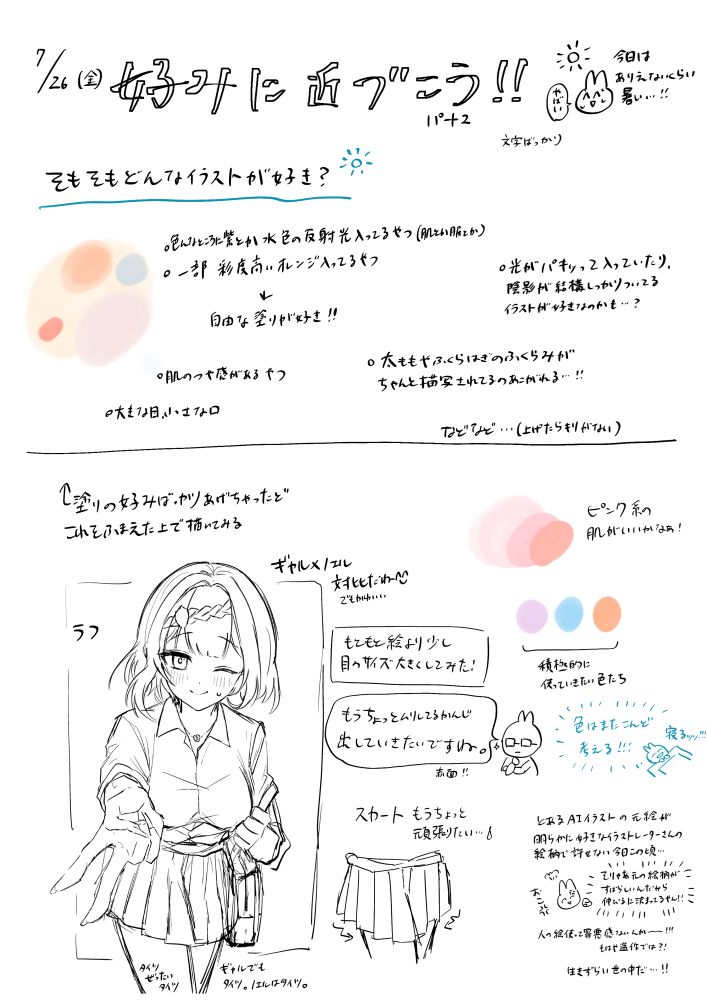 7/26(金)
好みに近づこう!!
パート2
今日は
ありえないくらい
暑い…!!
やばい
文字ばっかり
そもそもどんなイラストが好き?
。色んなところに紫とか水色の反射光入ってるやつ(肌とか服とか)
。一部 彩度高いオレンジ入ってるやつ
↓
自由な塗りが好き!!
。光がパキッって入っていたり、
陰影が結構しっかりついてる
イラストが好きなのかも…?
。肌のつや感があるやつ
。太ももやふくらはぎのふくらみが
ちゃんと描写されてるのあこがれる…!!
。大きな目、小さな口
などなど…(上げたらキリがない)
↑塗りの好みばっかりあげちゃったけど
これをふまえた上で描いてみる
ピンク系の
肌がいいかなぁ!
ギャル×ノエル
対比だね〜
でもかわいい
ラフ
もともと絵より少し
目のサイズ大きくしてみた!
積極的に
使っていきたい色たち
もうちょっとムリしてるかんじ
出していきたいですね。
赤面!!
色はまたこんど
考える!!!
寝るッッ!!!
スカート もうちょっと
頑張りたい…
とあるAIイラストの元絵が
明らかに好きなイラストレーターさんの
絵柄で許せない今日この頃…
そりゃあ元の絵柄が
すばらしいんだから
伸びるに決まってるやん!!
おこ
人の絵使って罪悪感ないんか――!!!
もはや盗作では?!
生きずらい世の中だ…!!
タイツ
ぜったい
タイツ
ギャルでも
タイツ。ノエルはタイツ。